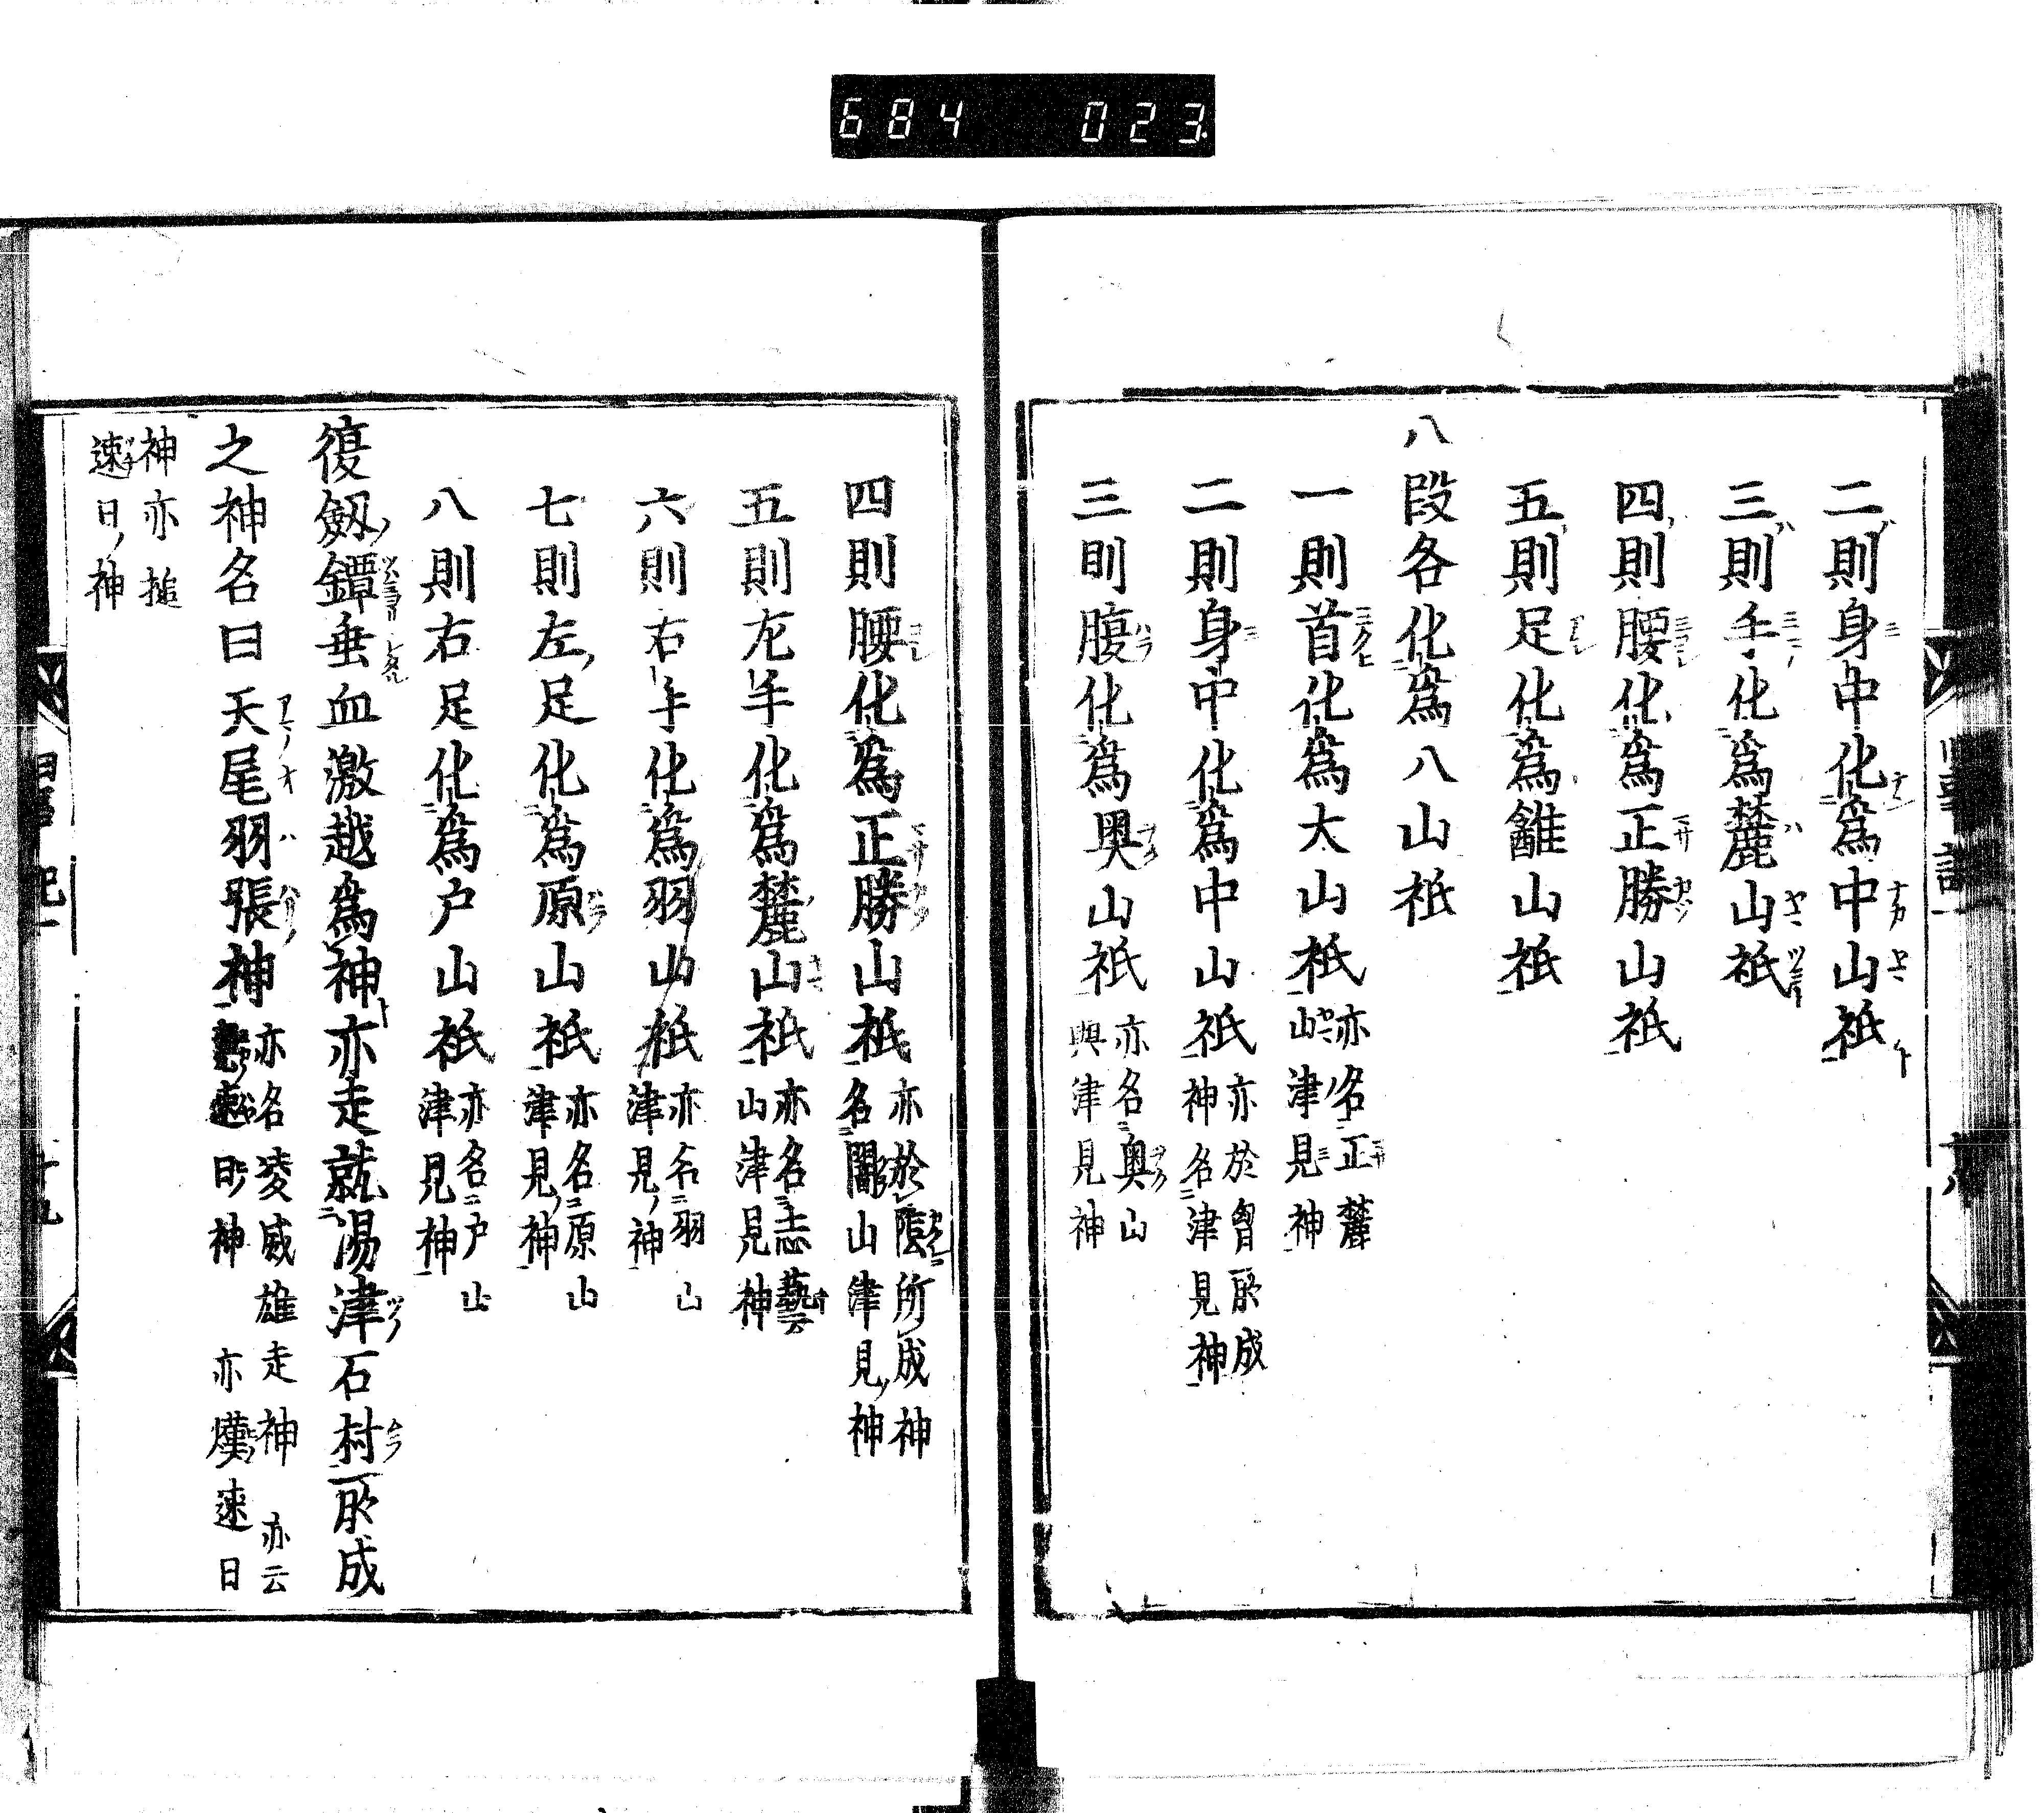 684 023
二則身中化為中山祇
三則手化為麓山祇
四則腰化為正勝山祇
五則足化為䨄山祇
八段各化為八山祇
一則首化為大山祇 亦名正麓
山津見神
二則身中化為中山祇 亦於胷所成
神名津見神
三則腹化為奥山祇 亦名奥山
興津見神
四則腰化為正勝山祇 亦於陰所成神
名闇山津見神
五則左手化為麓山祇 亦名志藝
山津見神
六則右手化為羽山祇 亦名羽山
津見神
七則左足化為原山祇 亦名原山
津見神
八則右足化為戸山祇 亦名戸山
津見神
復劔鐔垂血激越為神亦走就湯津石村所成
之神名曰天尾羽張神 亦名凌威雄走神 亦云
速日神 亦熯速日
神亦槌
速日神